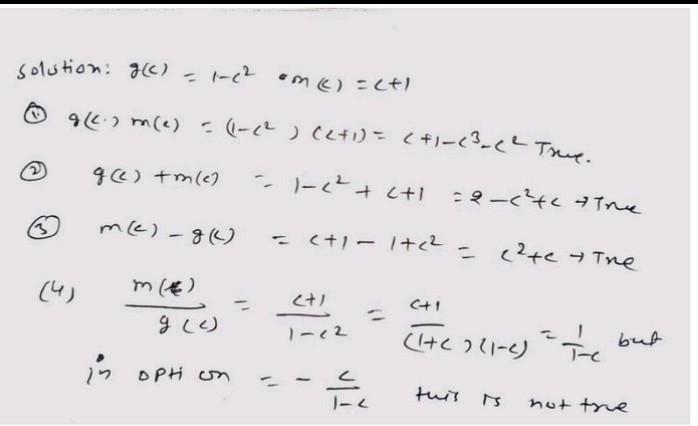 solution: g(c) = 1-c² • m(c) = c+1
① g(c·) m(c) = (1-c²) (c+1) = c+1-c³-c² True.
② g(c) + m(c) = 1-c² + c+1 = 2-c²+c → True
③ m(c) - g(c) = c+1 - 1+c² = c²+c → True
(4) m(c) / g(c) = c+1 / 1-c² = c+1 / (1+c)(1-c) = 1 / 1-c but
in option = - c / 1-c this is not true